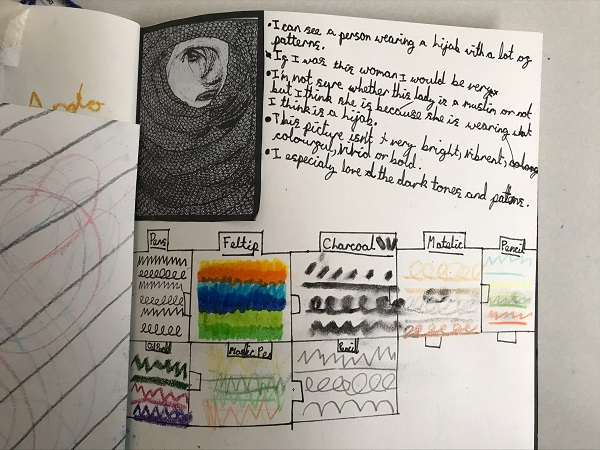 • I can see a person wearing a hijab with a lot of
patterns.
• If I was this woman I would be very
• I'm not sure whether this lady is a muslim or not
but I think she is because she is wearing what
I think is a hijab.
• This picture isn't very bright, vibrent,
colourful, vivid or bold.
• I especialy love the dark tones and pattens.
Pens
Feltip
Charcoal
Matelic
Pencil
Pencil